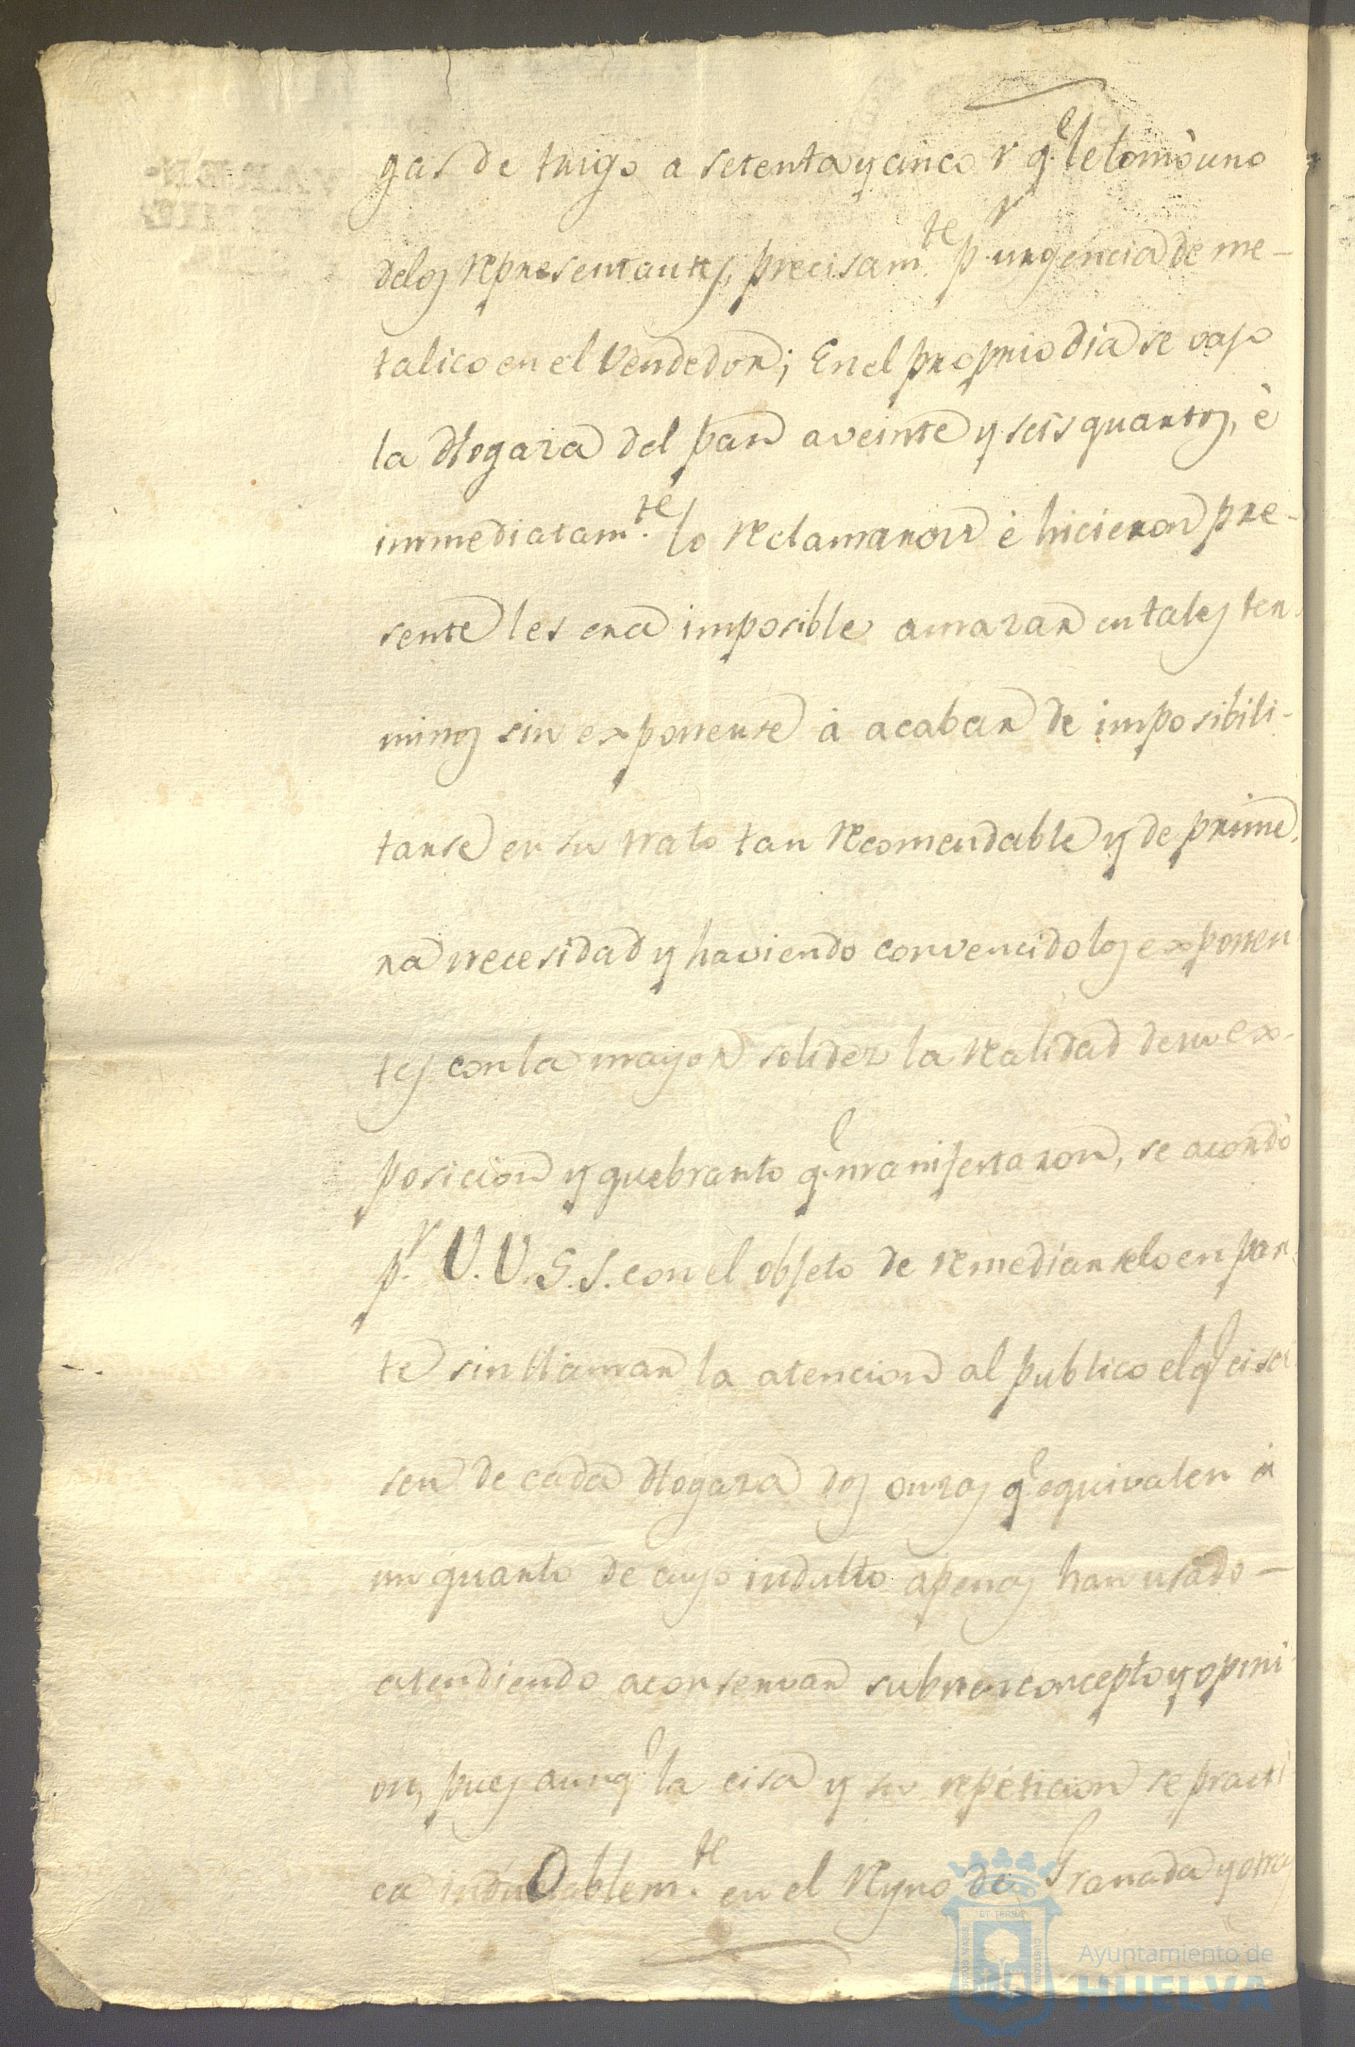 gas de trigo a setenta y cinco r.^s q.^e le tomò uno
delos representantes, precisam.^te p.^r urgencia de me-
talico en el Vendedor; En el proprio dia se vajo
la Hogaza del pan a veinte y seis quartos, è
immediatam.^te lo reclamaron è hicieron pre-
sente les era imposible amazar en tales ter-
minos sin exponerse à acabar de imposibili-
tarse en su trato tan recomendable y de prime-
ra necesidad y haviendo convencido los exponen
tes con la mayor solidez la realidad de su ex-
posicion y quebranto q.^e manifestaron, se acordò
p.^r V.V.S.S. con el objeto de remediarselo en par-
te sin llamar la atencion al publico el q.^e cisa
sen de cada Hogaza dos onzas q.^e equivalen à
un quarto de cuyo indulto apenas han usado-
atendiendo a conservar su buen concepto y opini
on, pues aunq.^e la cisa y su repeticion se practi
ca indudablem.^te en el Reyno de Granada y otras
Ayuntamiento de
HUELVA